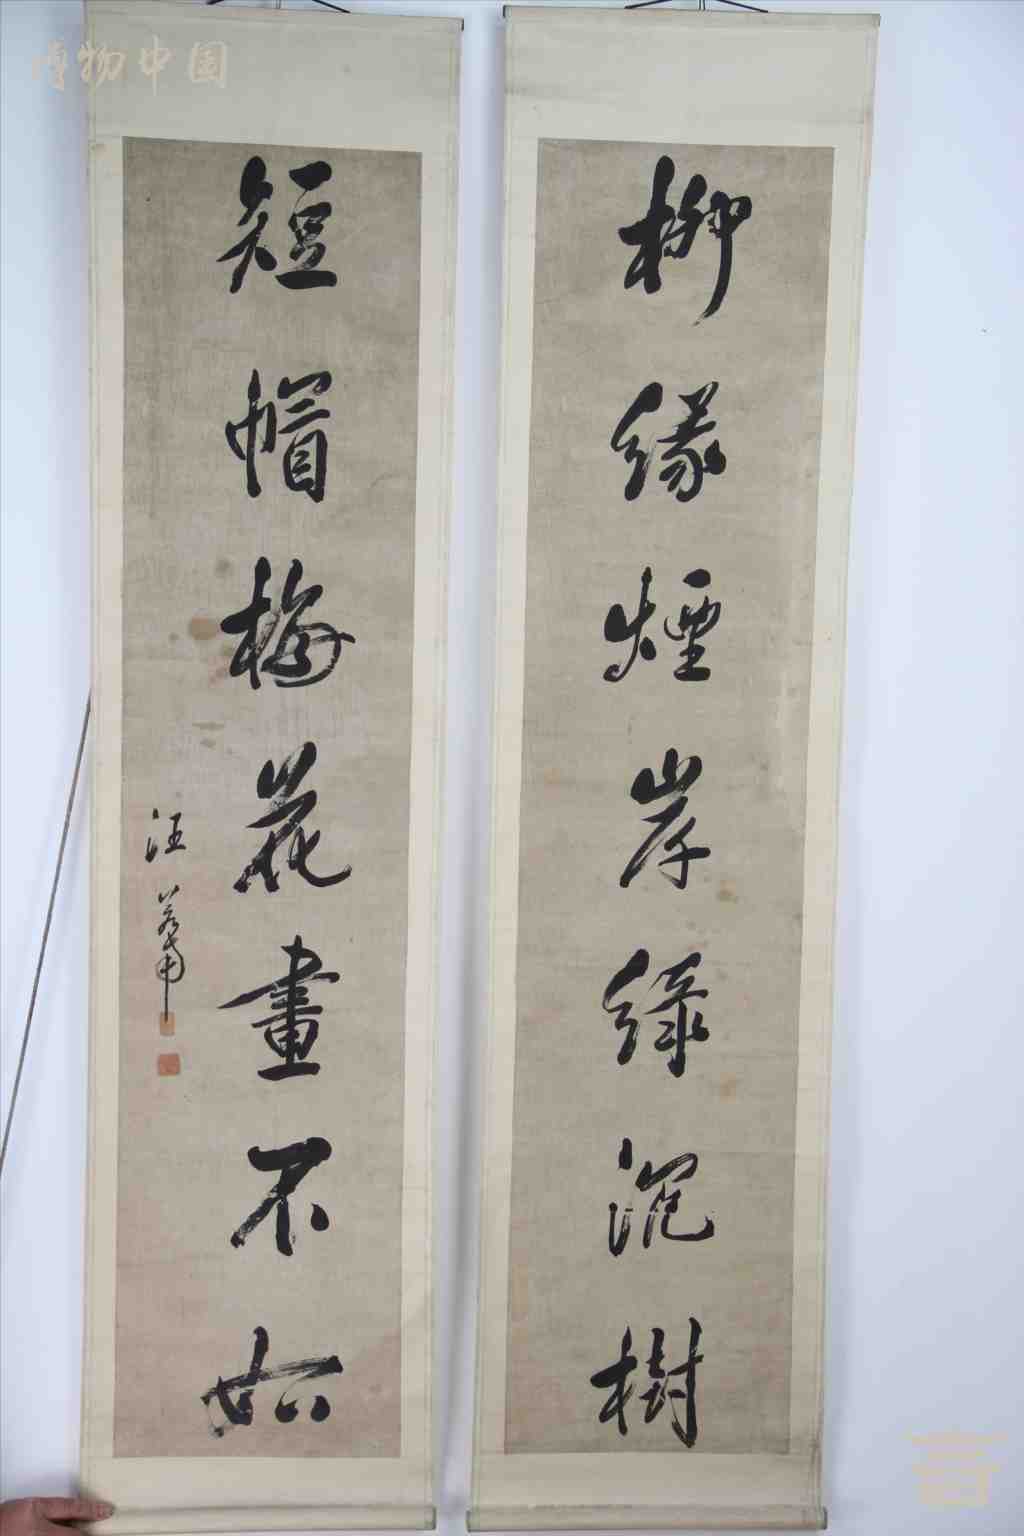 博物中国
柳緣煙岸綠沉樹
短帽梅花畫不如
汪